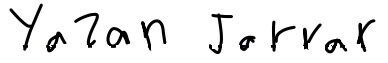 Yazan Jarrar